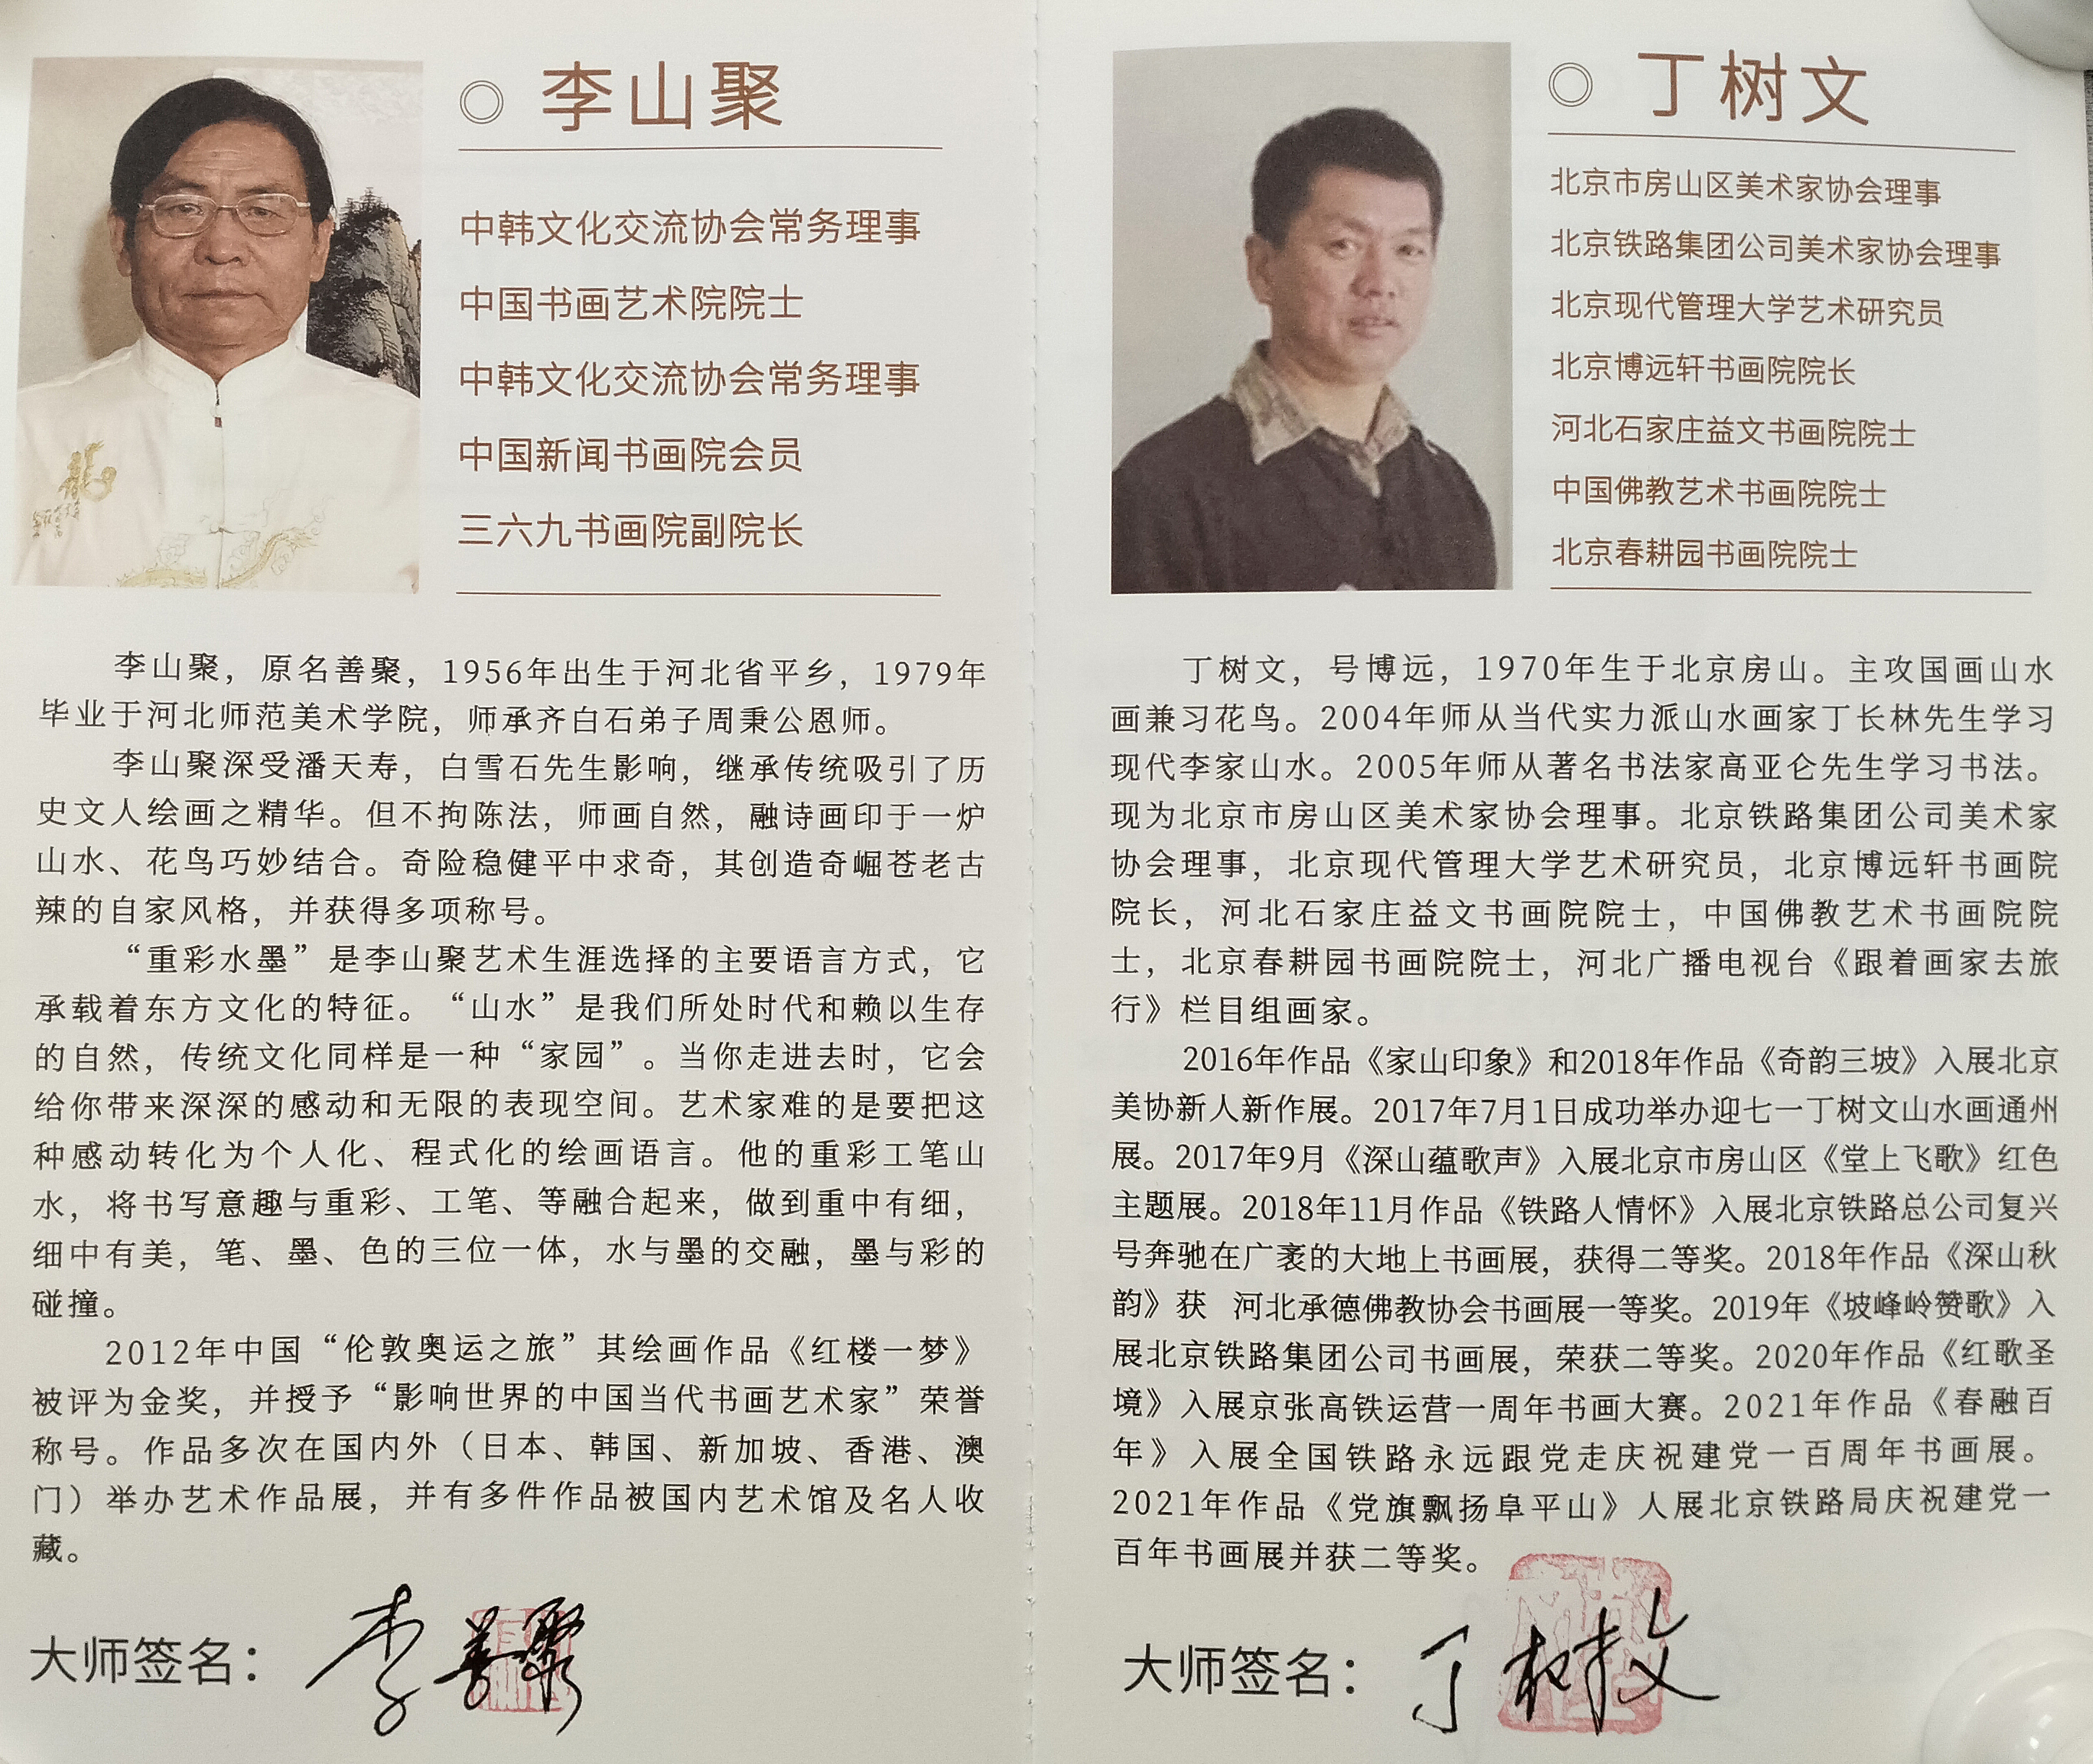 李山聚
中韩文化交流协会常务理事
中国书画艺术院院士
中韩文化交流协会常务理事
中国新闻书画院会员
三六九书画院副院长
李山聚，原名善聚，1956年出生于河北省平乡，1979年
毕业于河北师范美术学院，师承齐白石弟子周秉公恩师。
李山聚深受潘天寿，白雪石先生影响，继承传统吸引了历
史文人绘画之精华。但不拘陈法，师画自然，融诗画印于一炉
山水、花鸟巧妙结合。奇险稳健平中求奇，其创造奇崛苍老古
辣的自家风格，并获得多项称号。
“重彩水墨”是李山聚艺术生涯选择的主要语言方式，它
承载着东方文化的特征。“山水”是我们所处时代和赖以生存
的自然，传统文化同样是一种“家园”。当你走进去时，它会
给你带来深深的感动和无限的表现空间。艺术家难的是要把这
种感动转化为个人化、程式化的绘画语言。他的重彩工笔山
水，将书写意趣与重彩、工笔、等融合起来，做到重中有细，
细中有美，笔、墨、色的三位一体，水与墨的交融，墨与彩的
碰撞。
2012年中国“伦敦奥运之旅”其绘画作品《红楼一梦》
被评为金奖，并授予“影响世界的中国当代书画艺术家”荣誉
称号。作品多次在国内外（日本、韩国、新加坡、香港、澳
门）举办艺术作品展，并有多件作品被国内艺术馆及名人收
藏。
大师签名：李善聚
丁树文
北京市房山区美术家协会理事
北京铁路集团公司美术家协会理事
北京现代管理大学艺术研究员
北京博远轩书画院院长
河北石家庄益文书画院院士
中国佛教艺术书画院院士
北京春耕园书画院院士
丁树文，号博远，1970年生于北京房山。主攻国画山水
画兼习花鸟。2004年师从当代实力派山水画家丁长林先生学习
现代李家山水。2005年师从著名书法家高亚仑先生学习书法。
现为北京市房山区美术家协会理事。北京铁路集团公司美术家
协会理事，北京现代管理大学艺术研究员，北京博远轩书画院
院长，河北石家庄益文书画院院士，中国佛教艺术书画院院
士，北京春耕园书画院院士，河北广播电视台《跟着画家去旅
行》栏目组画家。
2016年作品《家山印象》和2018年作品《奇韵三坡》入展北京
美协新人新作展。2017年7月1日成功举办迎七一丁树文山水画通州
展。2017年9月《深山蕴歌声》入展北京市房山区《堂上飞歌》红色
主题展。2018年11月作品《铁路人情怀》入展北京铁路总公司复兴
号奔驰在广袤的大地上书画展，获得二等奖。2018年作品《深山秋
韵》获 河北承德佛教协会书画展一等奖。2019年《坡峰岭赞歌》入
展北京铁路集团公司书画展，荣获二等奖。2020年作品《红歌圣
境》入展京张高铁运营一周年书画大赛。2021年作品《春融百
年》入展全国铁路永远跟党走庆祝建党一百周年书画展。
2021年作品《党旗飘扬阜平山》人展北京铁路局庆祝建党一
百年书画展并获二等奖。
大师签名：丁树文